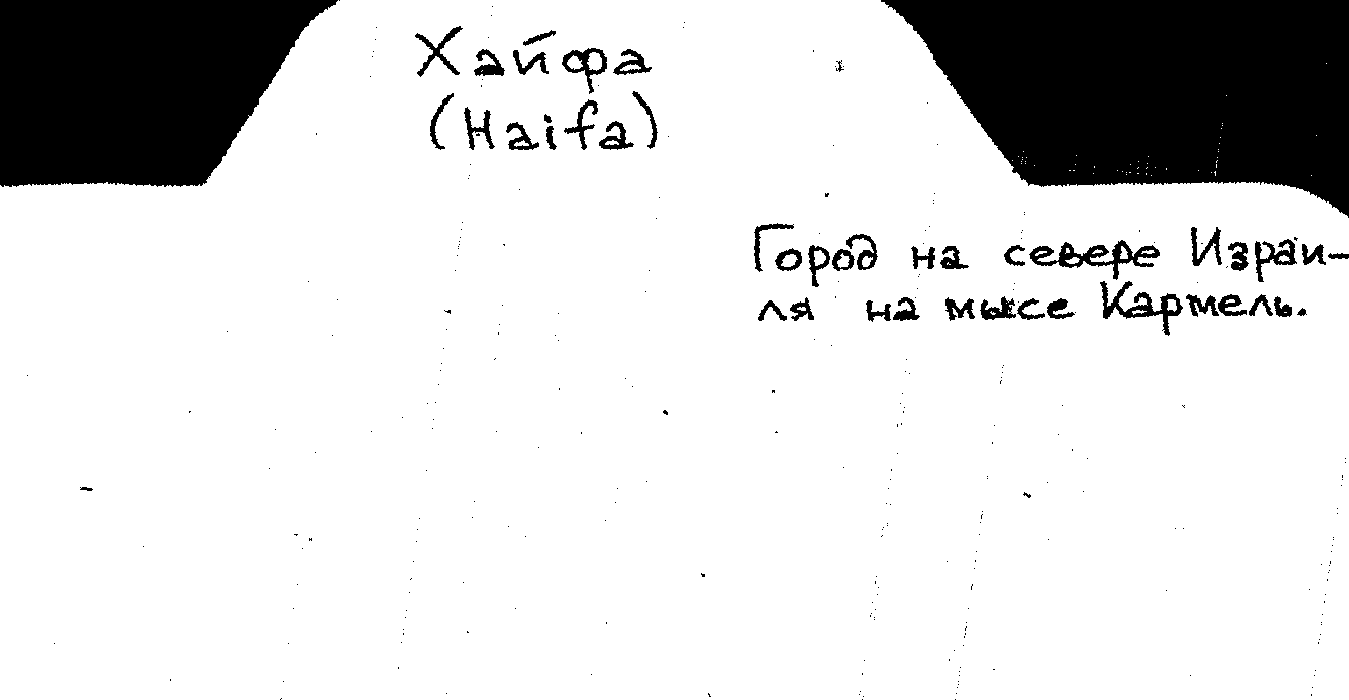 Хайфа
(Haifa)
Город на севере Израи-
ля на мысе Кармель.